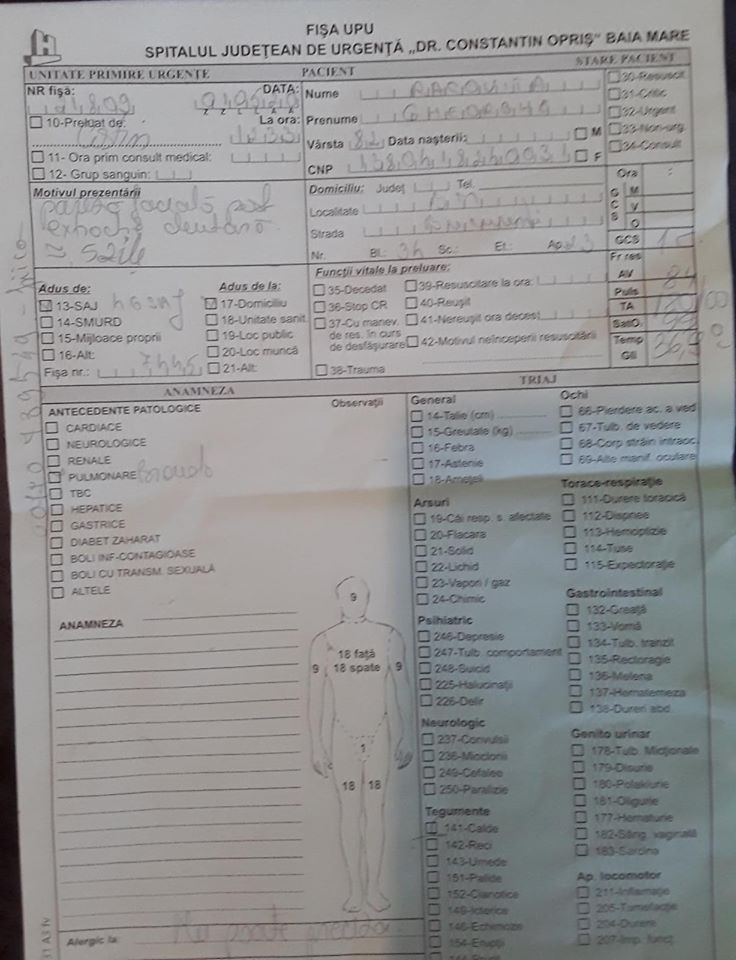 FIȘA UPU
SPITALUL JUDEȚEAN DE URGENȚĂ „DR. CONSTANTIN OPRIȘ” BAIA MARE
UNITATE PRIMIRE URGENȚE
PACIENT
STARE PACIENT
NR fișă:
DATA:
Z Z L L A A
10-Preluat de:
La ora:
1233
11- Ora prim consult medical:
12- Grup sanguin:
Nume
Prenume
Vârsta 82 Data nașterii: M
CNP F
30-Resuscit
31-Critic
32-Urgent
33-Non-urg.
34-Consult
Motivul prezentării
pareza facială post
dentară
Domiciliu: Județ Tel.
Localitate
Strada
Nr. Bl.: Sc.: Et.: Ap.
Ora :
G C S
M
V
O
GCS 15
Fr res
AV 84
Puls
TA
SatO2 98
Temp 36,9
Gli
Adus de:
13-SAJ
14-SMURD
15-Mijloace proprii
16-Alt:
Fișa nr.: 7445
Adus de la:
17-Domiciliu
18-Unitate sanit.
19-Loc public
20-Loc muncă
21-Alt:
Funcții vitale la preluare:
35-Decedat
36-Stop CR
37-Cu manev.
de res. în curs
de desfășurare
38-Trauma
39-Resuscitare la ora:
40-Reușit
41-Nereușit ora deces:
42-Motivul neînceperii resuscitării
ANAMNEZA
ANTECEDENTE PATOLOGICE
Observații
CARDIACE
NEUROLOGICE
RENALE
PULMONARE
TBC
HEPATICE
GASTRICE
DIABET ZAHARAT
BOLI INF-CONTAGIOASE
BOLI CU TRANSM. SEXUALĂ
ALTELE
ANAMNEZA
9
18 față
9 18 spate 9
1
18 18
Alergic la: Nu poate preciza
31 A3 fv
TRIAJ
General
14-Talie (cm)
15-Greutate (kg)
16-Febra
17-Astenie
18-Amețeli
Arsuri
19-Căi resp. s. afectate
20-Flacara
21-Solid
22-Lichid
23-Vapori / gaz
24-Chimic
Psihiatric
246-Depresie
247-Tulb. comportament
248-Suicid
225-Halucinații
226-Delir
Neurologic
237-Convulsii
236-Mioclonii
249-Cefalee
250-Paralizie
Tegumente
141-Calde
142-Reci
143-Umede
151-Palide
152-Cianotice
149-Icterice
146-Echimoze
154-Erupții
Ochi
66-Pierdere ac. a ved
67-Tulb. de vedere
68-Corp străin intraoc.
69-Alte manif. oculare
Torace-respirație
111-Durere toracică
112-Dispnee
113-Hemoptizie
114-Tuse
115-Expectorație
Gastrointestinal
132-Greață
133-Vomă
134-Tulb. tranzit
135-Rectoragie
136-Melena
137-Hematemeza
138-Dureri abd.
Genito urinar
178-Tulb. Micționale
179-Disurie
180-Polakiurie
181-Oligurie
177-Hematurie
182-Sâng. vaginală
183-Sarcina
Ap. locomotor
211-Inflamație
205-Tumefacție
204-Durere
207-Imp. funct